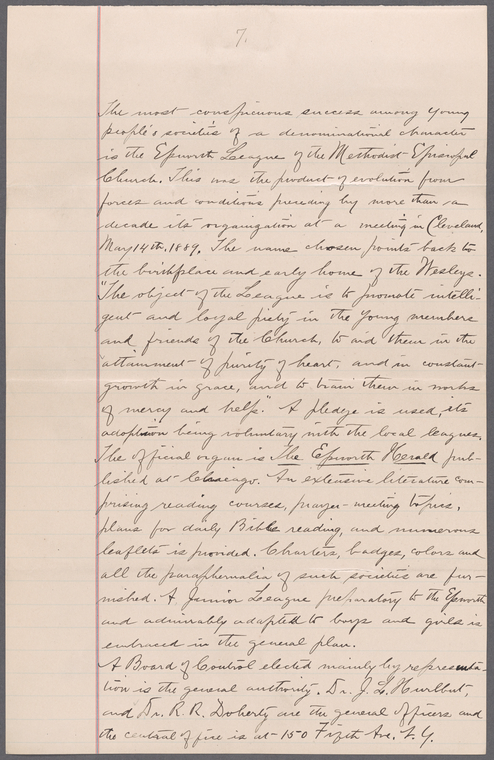 7.
The most conspicuous success among young
people's societies of a denominational character
is the Epworth League of the Methodist Episcopal
Church. This was the product of evolution from
forces and conditions preceding by more than a
decade its organization at a meeting in Cleveland,
May 14th. 1889. The name chosen points back to
the birthplace and early home of the Wesleys.
"The object of the League is to promote intelli-
gent and loyal piety in the young members
and friends of the Church, to aid them in the
attainment of purity of heart, and in constant
growth in grace, and to train them in works
of mercy and help." A pledge is used, its
adoption being voluntary with the local leagues.
The official organ is The Epworth Herald pub-
lished at Chicago. An extensive literature com-
prising reading courses, prayer-meeting topics,
plans for daily Bible reading, and numerous
leaflets is provided. Charters, badges, colors and
all the paraphernalia of such societies are fur-
nished. A Junior League preparatory to the Epworth
and admirably adapted to boys and girls is
embraced in the general plan.
A Board of Control elected mainly by representa-
tion is the general authority. Dr. J. L. Hurlbut,
and Dr. R. R. Doherty are the general officers and
the central office is at 150 Fifth Ave. N. Y.